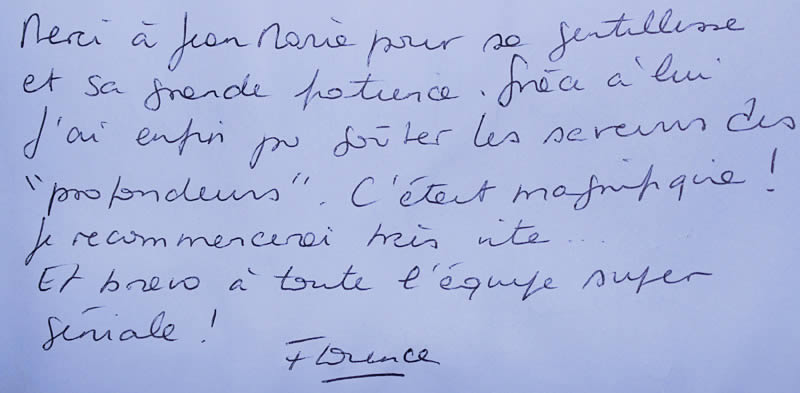 Merci à Jean Marie pour sa gentillesse
et sa grande patience. Grâce à lui
J'ai enfin pu goûter les saveurs des
"profondeurs". C'était magnifique !
Je recommencerai très vite...
Et bravo à toute l'équipe super
géniale !
Florence